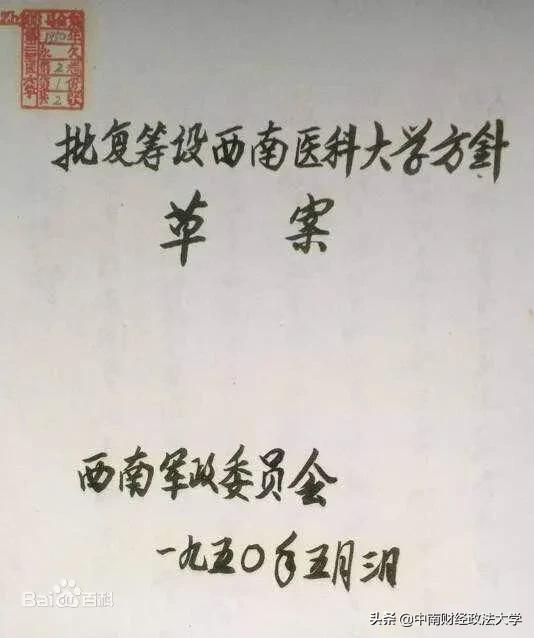 1950
2
1
2
批复筹设西南医科大学方針
草案
西南军政委员会
一九五〇年五月三日
Bai百科
头条 @中南财经政法大学